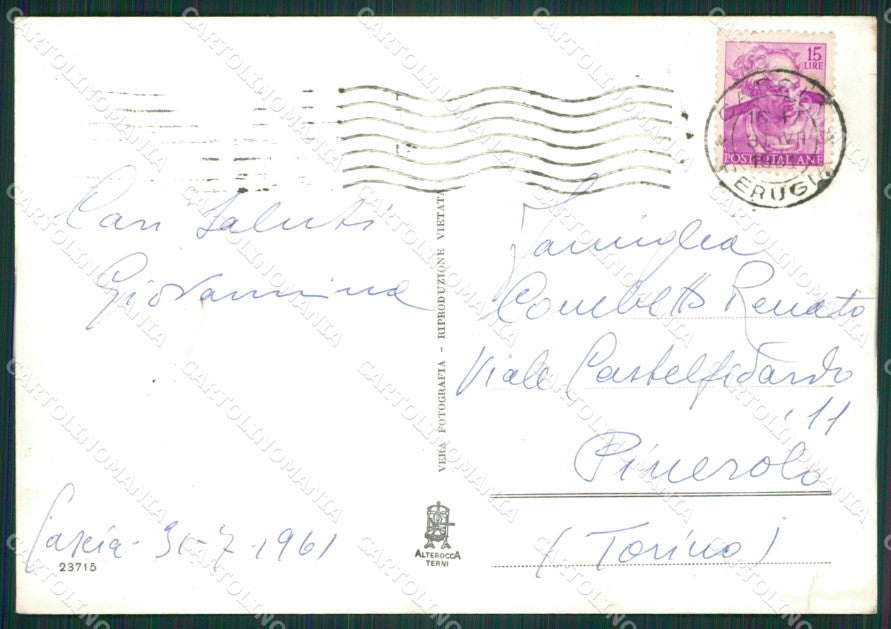 15
LIRE
POSTE ITALIANE
PERUGIA
Cari Saluti
Giovannina
Cascia - 31-7-1961
23715
VERA FOTOGRAFIA - RIPRODUZIONE VIETATA
ALTEROCCA
TERNI
Famiglia
Combetto Renato
Viale Castelfidardo
11
Pinerolo
(Torino)
CARTOLINOMANIA